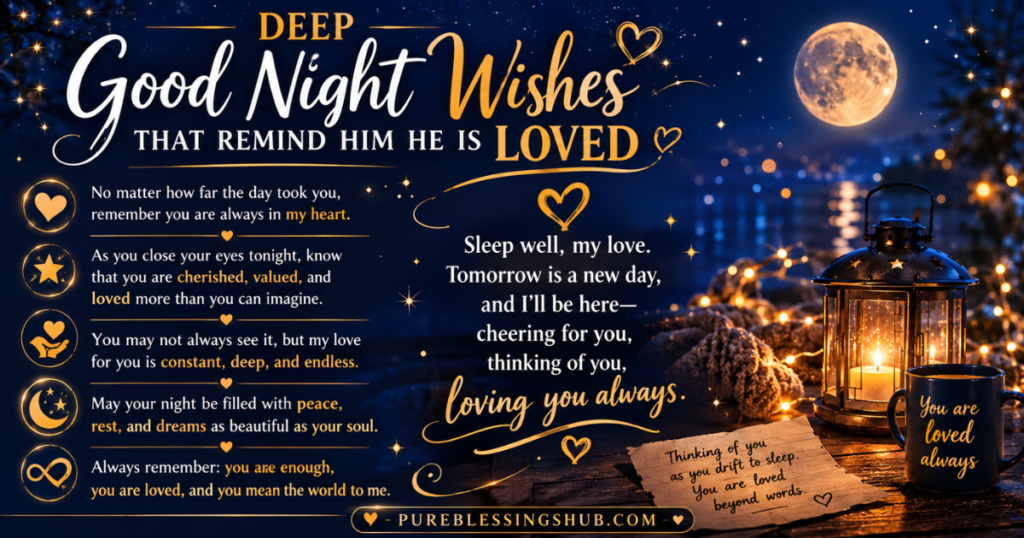 DEEP
Good Night Wishes
THAT REMIND HIM HE IS LOVED
No matter how far the day took you,
remember you are always in my heart.
As you close your eyes tonight, know
that you are cherished, valued, and
loved more than you can imagine.
You may not always see it, but my love
for you is constant, deep, and endless.
May your night be filled with peace,
rest, and dreams as beautiful as your soul.
Always remember: you are enough,
you are loved, and you mean the world to me.
Sleep well, my love.
Tomorrow is a new day,
and I'll be here—
cheering for you,
thinking of you,
loving you always.
Thinking of you
as you drift to sleep.
You are loved
beyond words.
You are
loved
always
- PUREBLESSINGSHUB.COM -